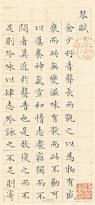 琴賦
余少好音聲長而翫之以為物有盛
衰而此無變滋味有厭而此不勌可
以導養神氣宣和情志處窮獨而不
悶者莫近於音聲也是故復之而不
足則吟詠以肆志吟詠之不足則寄